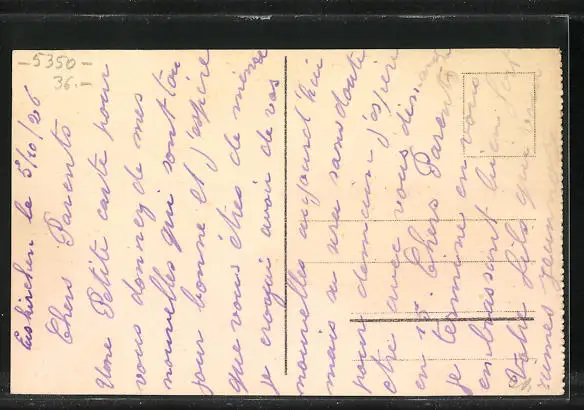 -5350-
36.-
Euskirchen le 5/10/26
Chers Parents
Une Petite carte pour
vous donnez de mes
nouvelles qui sont tou
jour bonne et j'espère
que vous êtes de même
je croyai avoir de vos
nouvelles aujourd'hui
mais se sera sans doute
pour demain j'espère
etre avec vous
en Chers Parents
je termine en vous
embrassant bien fort
Votre fils qui